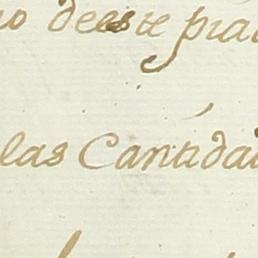 no deeste pra
las Cantidad